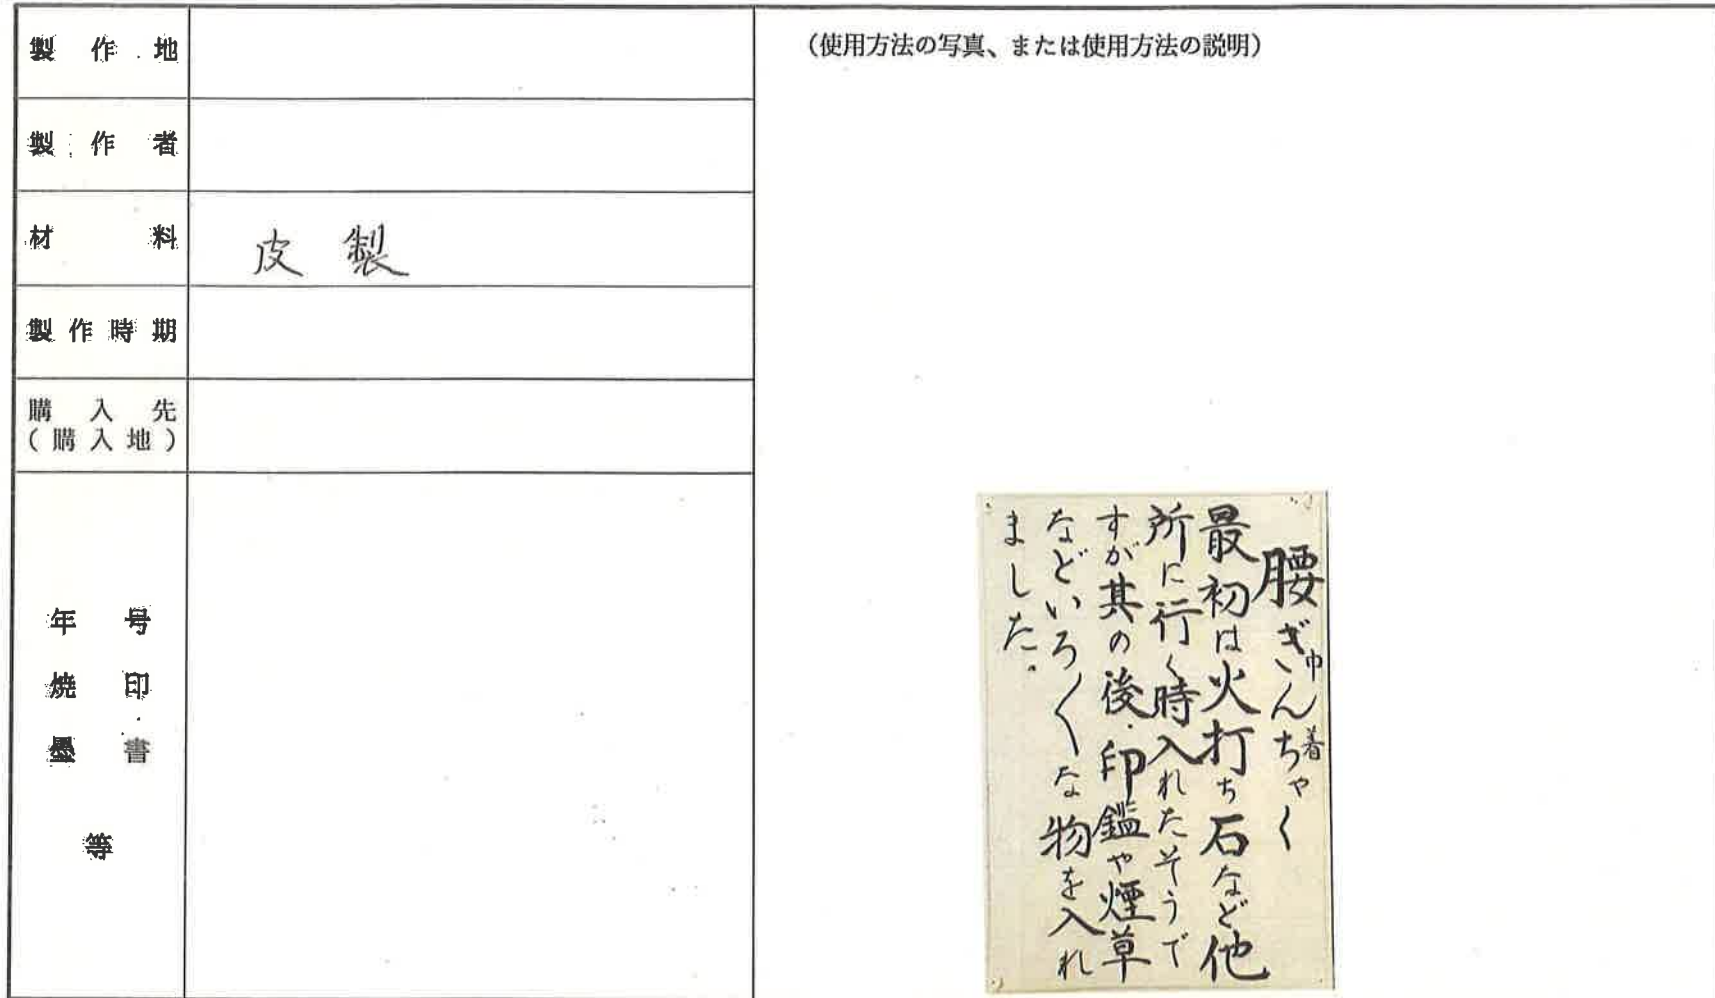 製作地
製作者
材料
皮製
製作時期
購入先
(購入地)
年号
焼印・
墨書
等
(使用方法の写真、または使用方法の説明)
腰ぎんちゃく
巾着
最初は火打ち石など他
所に行く時入れたそうで
すが其の後・印鑑や煙草
などいろ〳〵な物を入れ
ました。